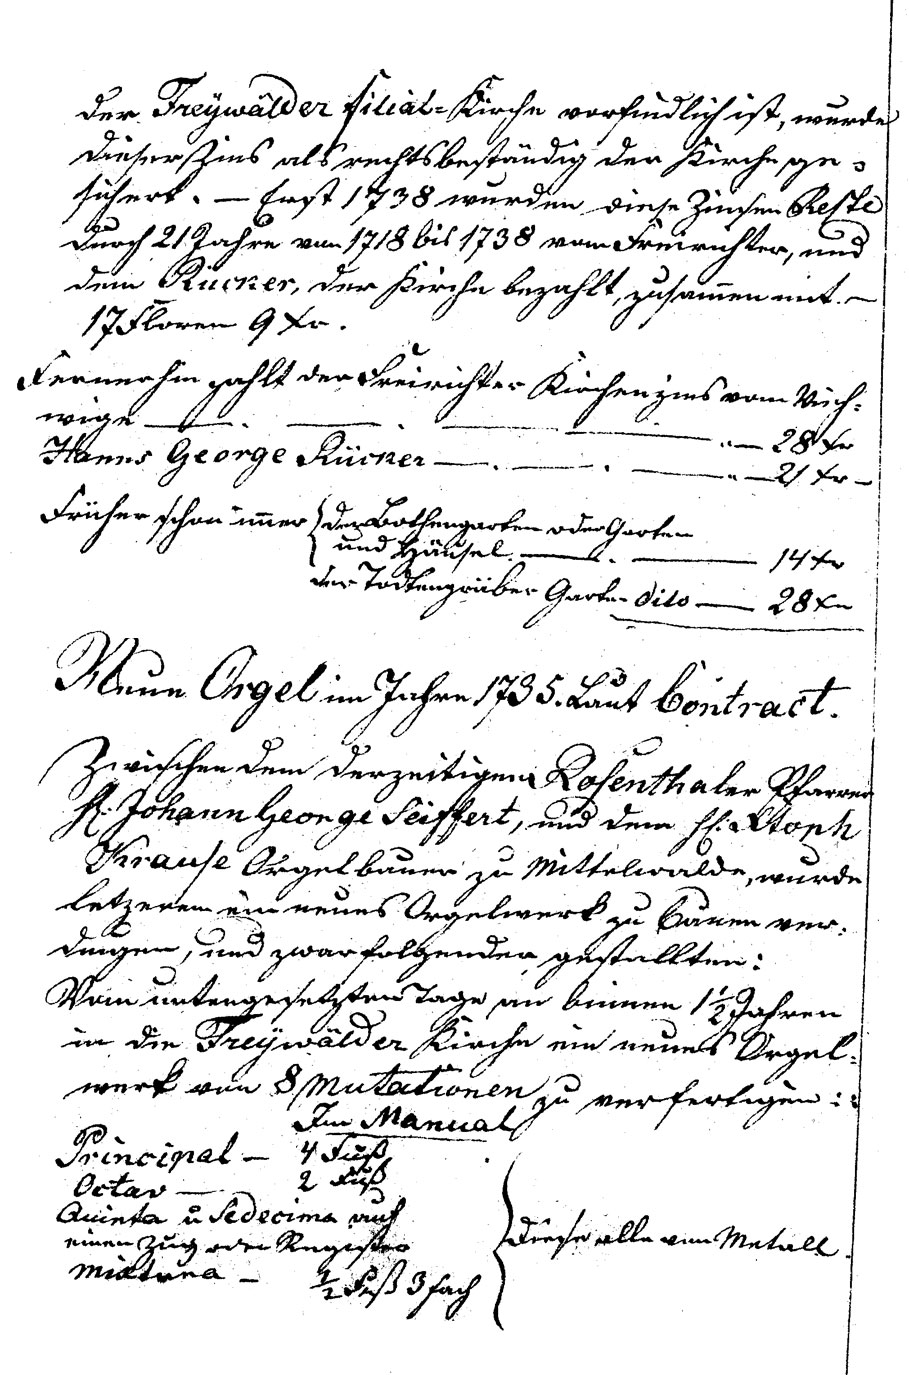 der Freÿwälder filial-Kirche vorfindlich ist, wurde
dieser Zins als rechtsbeständig der Kirche ge-
sichert. — Erst 1738 wurden diese Zinsen Reste
durch 21 Jahre von 1718 bis 1738 vom Freirichter, und
dem Rücker, der Kirche bezahlt, zusam̅en mit. —
17 Floren 9 Xr.
Fernerhin zahlt der Freirichter Kirchenzins vom Vieh-
wige — 28 Xr
Hanns George Rücker — 21 Xr —
Früher schon im̅er der Bothengarten oder Garten
und Häusel — 14 Xr
der Todtengräber Garten dito — 28 Xr
Neue Orgel im Jahre 1735. Laut Contract.
Zwischen dem derzeitigen Rosenthaler Pfarrer
H: Johann George Seiffert, und dem H: Xtoph
Krause Orgelbauer zu Mittelwalde, wurde
letzeren ein neues Orgelwerk zu bauen ver-
dungen, und zwar folgender gestallten:
Vom untengesetzten Tage an binnen 1½ Jahren
in die Freÿwälder Kirche ein neues Orgel-
werk von 8 Mutationen zu verfertigen::
Im Manual
Principal — 4 Fuß
Octav — 2 Fuß
Quinta u Sedecima auf
einen Zug oder Register
Mixtura — ½ Fuß 3 fach
Diese alle von Metall.